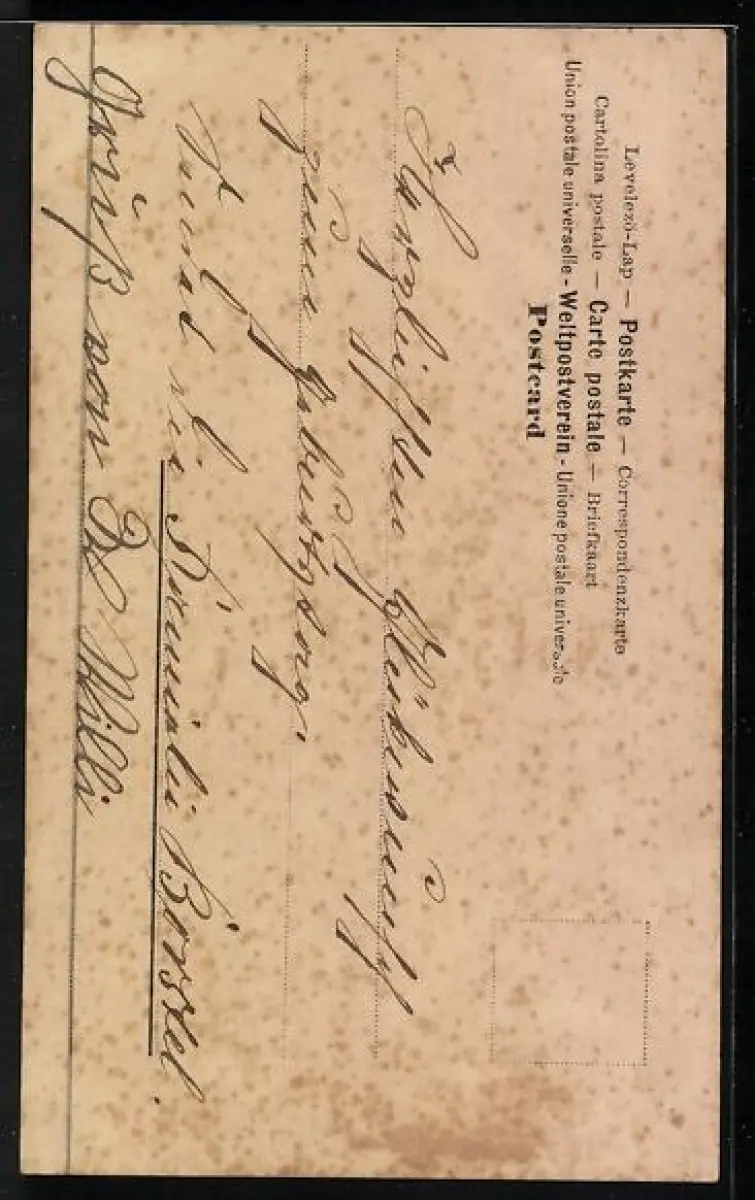 Levelező-Lap — Postkarte — Correspondenzkarte
Cartolina postale — Carte postale — Briefkaart
Union postale universelle - Weltpostverein - Unione postale universale
Postcard
Herzlichen Glückwunsch
zum Geburtstag.
Familie
Gruß von Willi